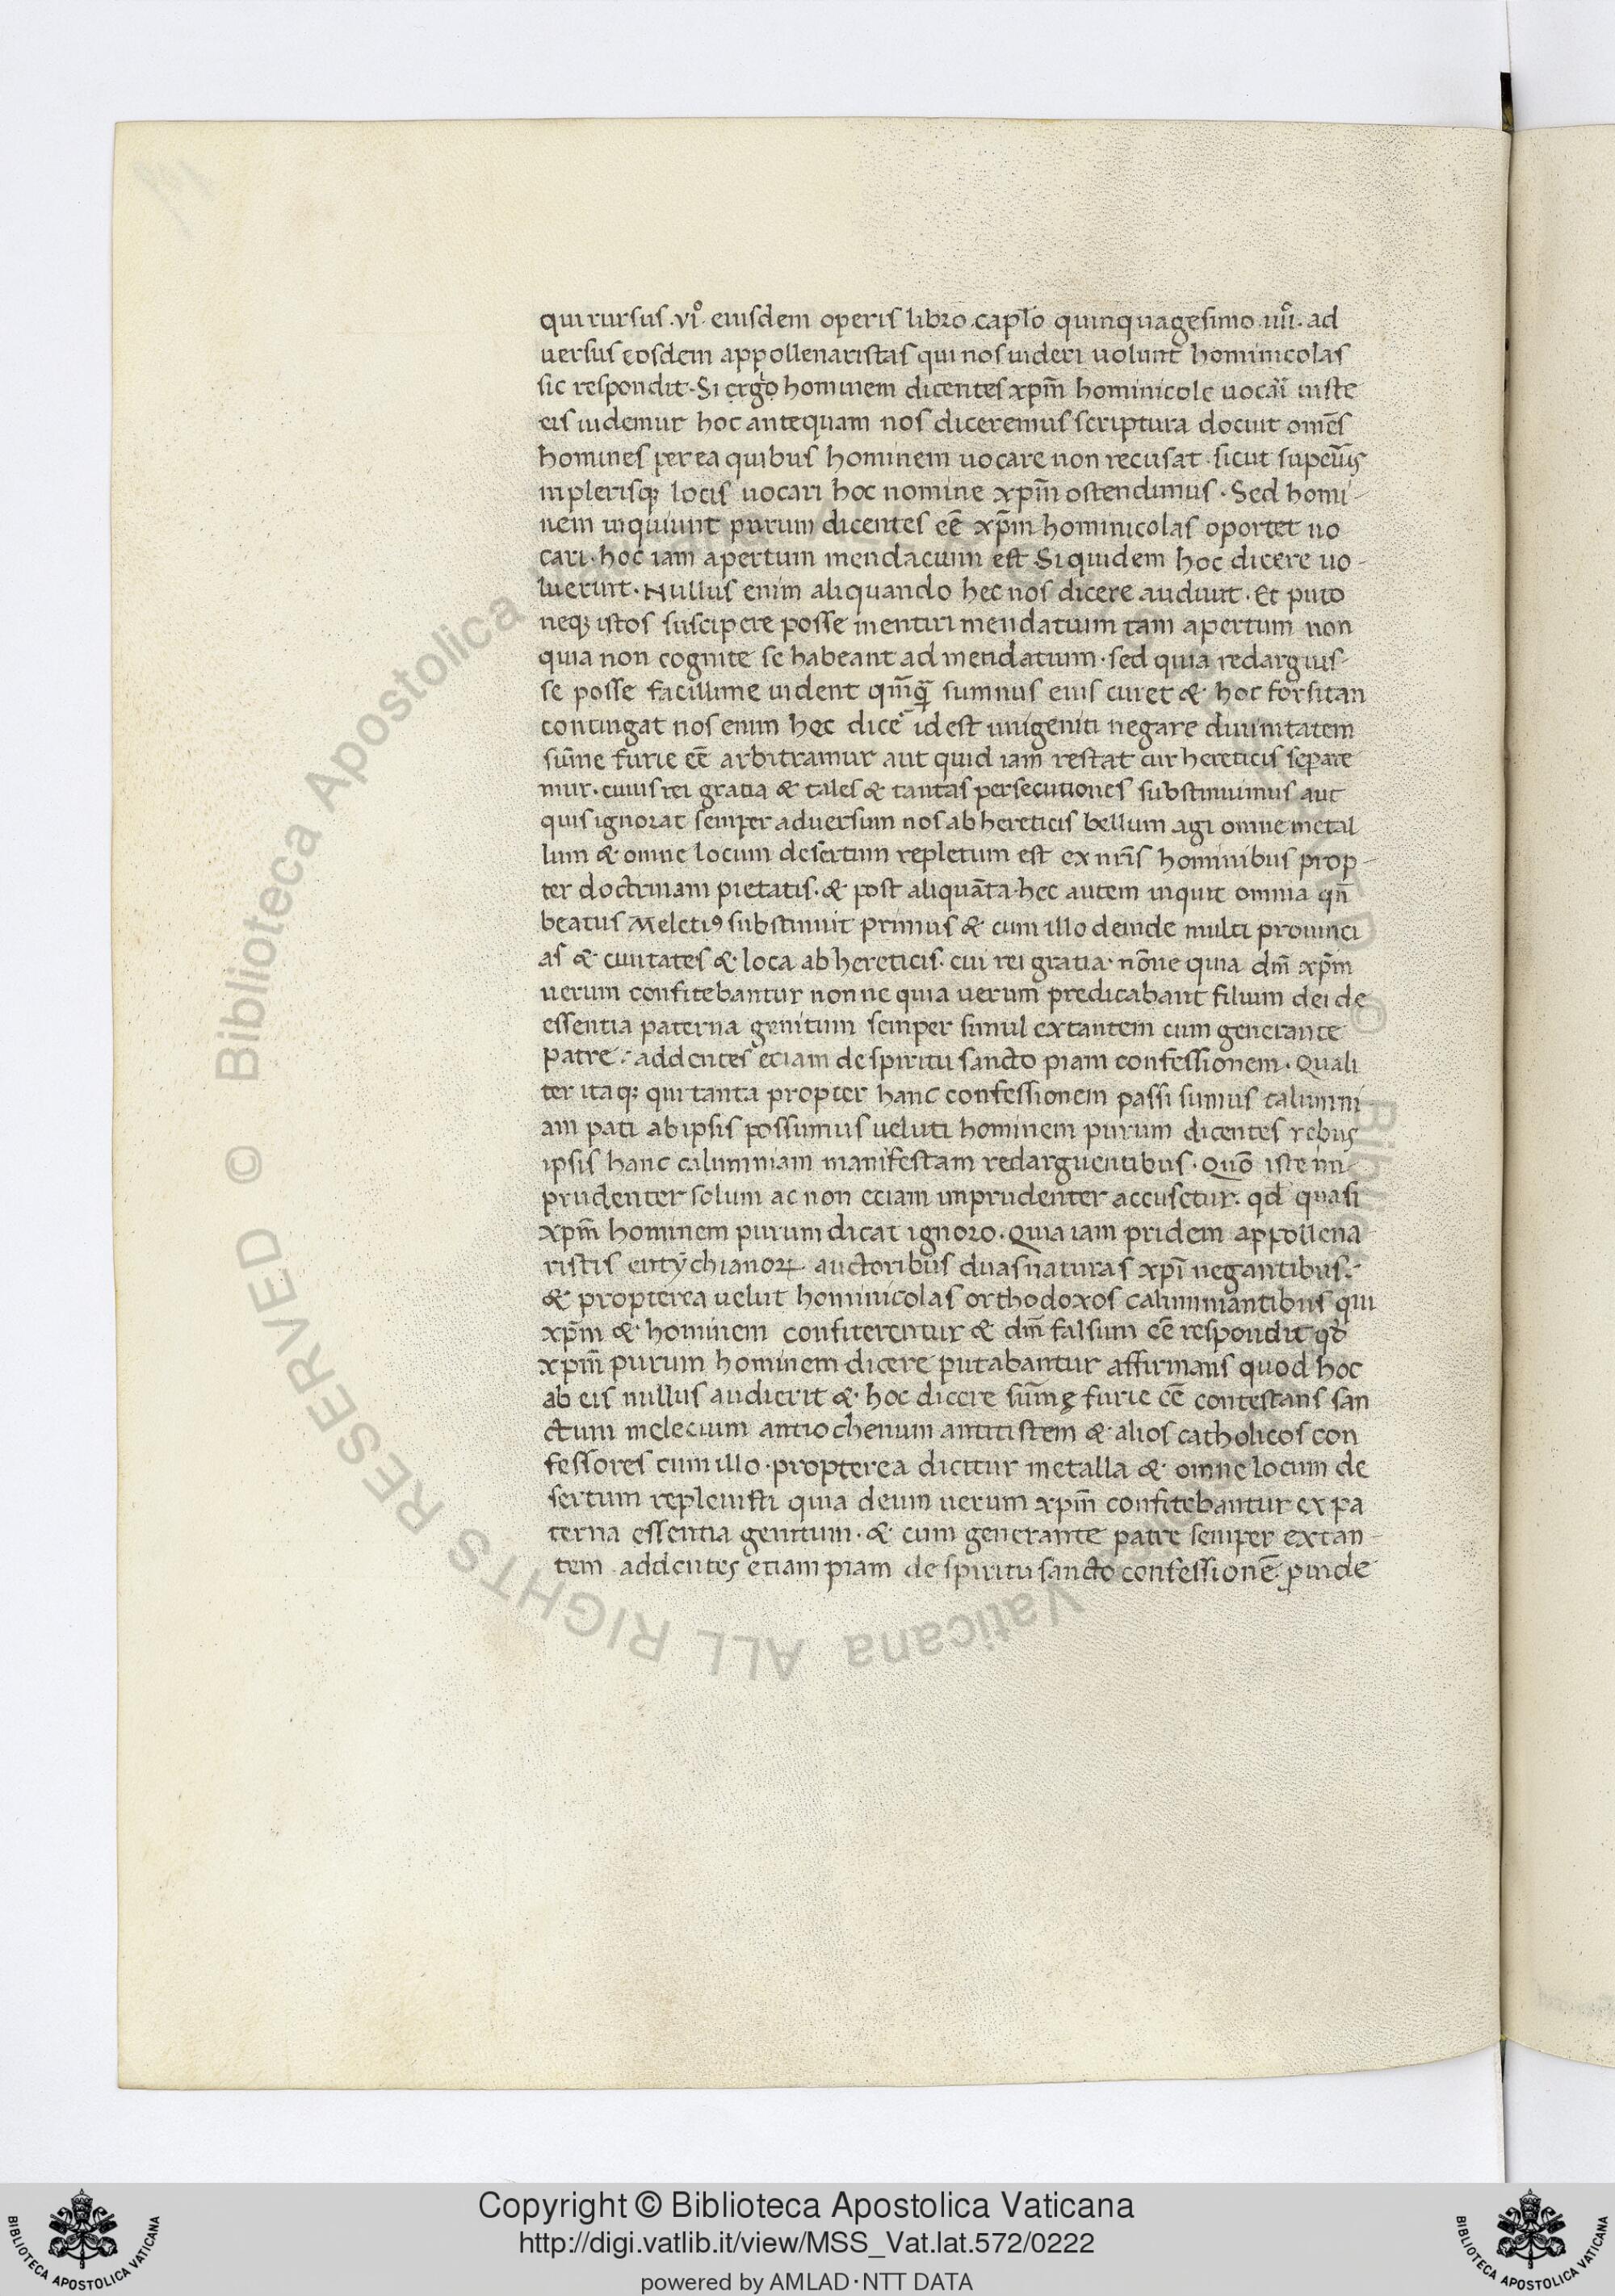 qui rursus .vi°. eiusdem operis libro caplo quinquagesimo .iiii°. ad
uersus eosdem appollenaristas qui nos uideri uolunt hominicolas
sic respondit. Si ergo hominem dicentes xpm̄ hominicole uocari iuste
eis uidemur hoc antequam nos diceremus scriptura docuit om̄es
homines per ea quibus hominem uocare non recusat. sicut superius
in plerisq; locis uocari hoc nomine xpm̄ ostendimus. Sed homi-
nem inquiunt purum dicentes eē xpm̄ hominicolas oportet uo
cari. hoc iam apertum mendacium est Siquidem hoc dicere uo-
luerint. Nullus enim aliquando hec nos dicere audiuit. Et puto
neq; istos suscipere posse mentiri mendatium tam apertum non
quia non cognite se habeant ad mendatium. sed quia redarguis-
se posse facillime uident qm̄q̄ sumnus eius curet & hoc forsitan
contingat nos enim hęc dicē id est unigeniti negare diuinitatem
sūme furie eē arbitramur aut quid iam restat cur hereticis separe
mur. cuius rei gratia & tales & tantas persecutiones substinuimus aut
quis ignorat semper aduersum nos ab hereticis bellum agi omne metal
lum & omne locum desertum repletum est ex nr̄is hominibus prop-
ter doctrinam pietatis. & post aliquāta hec autem inquit omnia qn̄
beatus Meleti9 substinuit primus & cum illo deinde multi prouinci
as & ciuitates & loca ab hereticis. cui rei gratia. nōne quia dm̄ xpm̄
uerum confitebantur nonne quia uerum predicabant filium dei de
essentia paterna genitum semper simul extantem cum generante
patre. addentes etiam de spiritu sancto piam confessionem. Quali
ter itaq; qui tanta propter hanc confessionem passi sumus calumni
am pati ab ipsis possumus ueluti hominem purum dicentes rebus
ipsis hanc calumniam manifestam redarguentibus. Quō iste im-
prudenter solum ac non etiam imprudenter accusetur. qd quasi
xpm̄ hominem purum dicat ignoro. Quia iam pridem appollena
ristis eutychianoꝝ auctoribus duas naturas xpi negantibus.
& propterea uelut hominicolas orthodoxos calumniantibus qui
xpm̄ & hominem confiterentur & dm̄ falsum eē respondit qd
xpm̄ purum hominem dicere putabantur affirmans quod hoc
ab eis nullus audierit & hoc dicere sūmę furie eē contestans san
ctum melecium antiochenum antitistem & alios catholicos con
fessores cum illo. propterea dicitur metalla & omne locum de
sertum repleuisti quia deum uerum xpm̄ confitebantur ex pa
terna essentia genitum. & cum generante patre semper extan-
tem addentes etiam piam de spiritu sancto confessionē. ꝓinde
© Biblioteca Apostolica Vaticana ALL RIGHTS RESERVED
Copyright © Biblioteca Apostolica Vaticana
http://digi.vatlib.it/view/MSS_Vat.lat.572/0222
powered by AMLAD·NTT DATA
BIBLIOTECA APOSTOLICA VATICANA
BIBLIOTECA APOSTOLICA VATICANA